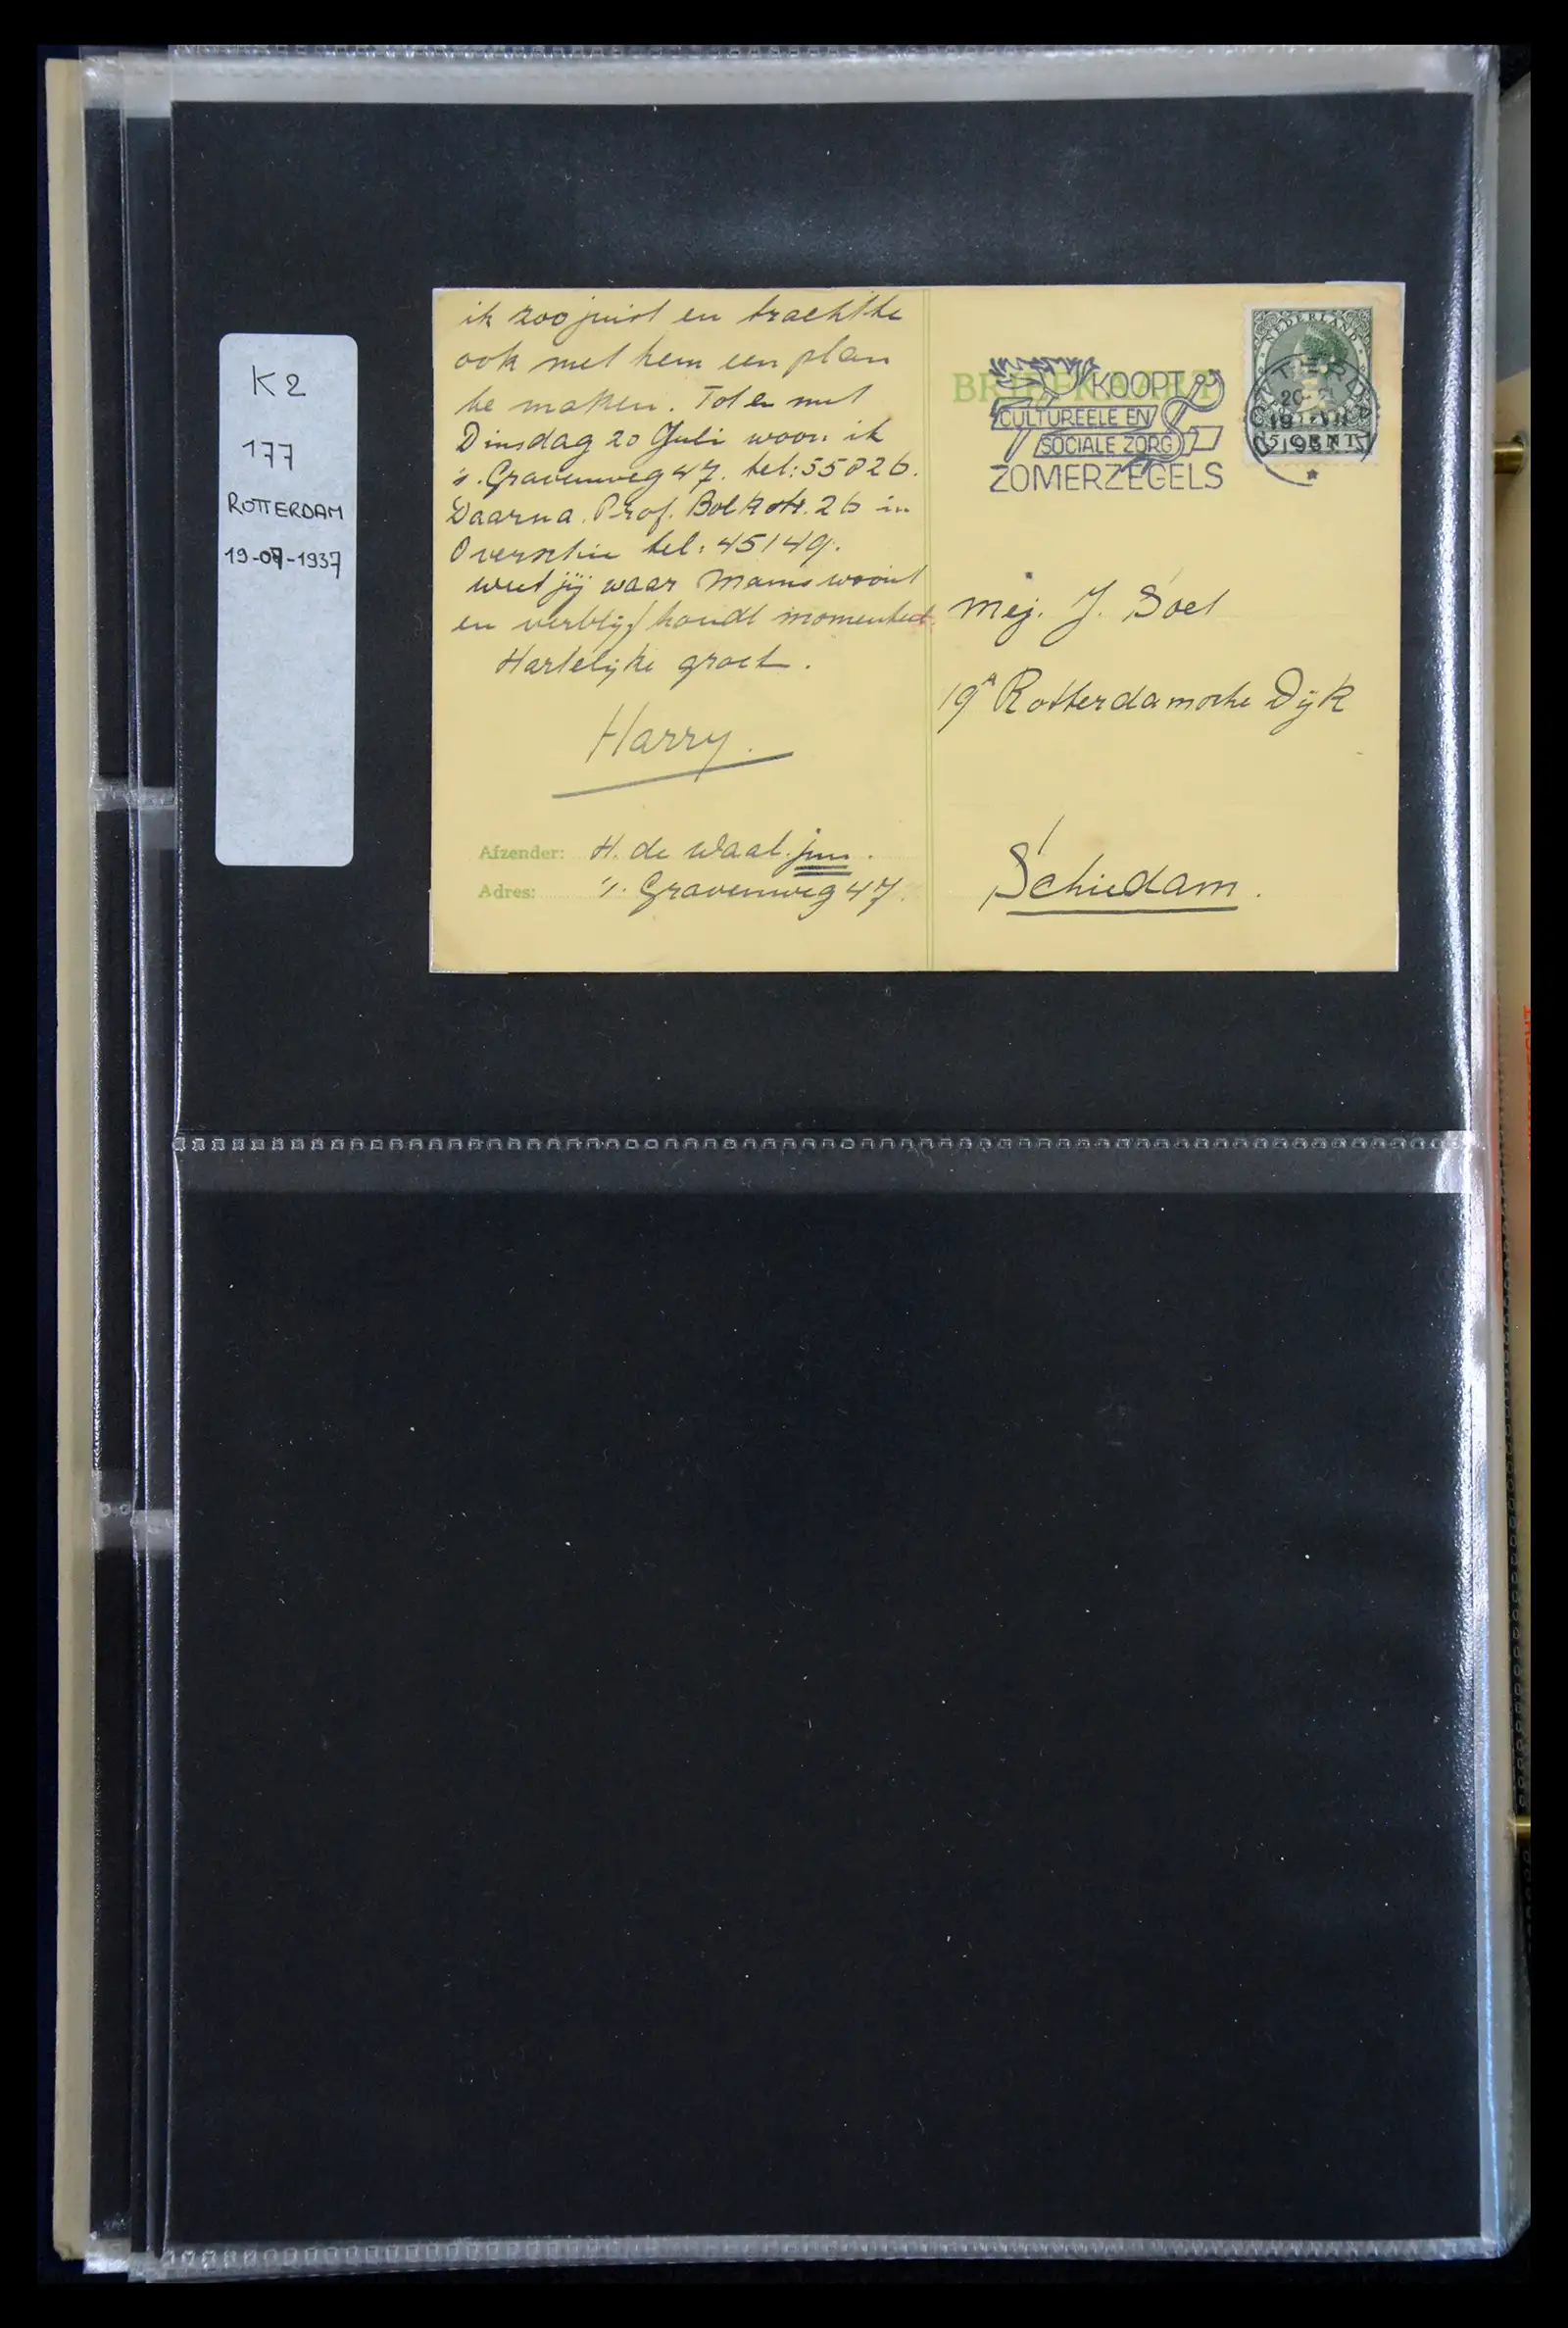 K2
177
ROTTERDAM
19-07-1937
ik zoo juist en trachtte
ook met hem een plan
te maken. Tot en met
Dinsdag 20 Juli woon ik
's. Gravenweg 47. tel: 55826.
Daarna. Prof. Bolkstr. 26 in
Overschie tel: 45149.
weet jij waar Mams woont
en verblijf houdt momenteel.
Hartelijke groet.
Harry.
Afzender: H. de Waal. jnr.
Adres: 's. Gravenweg 47.
BRIEFKAART
KOOPT
CULTUREELE EN
SOCIALE ZORG
ZOMERZEGELS
NEDERLAND
ROTTERDAM
19 VII
1937
Mej. J. Soet
19A Rotterdamsche Dijk
Schiedam.